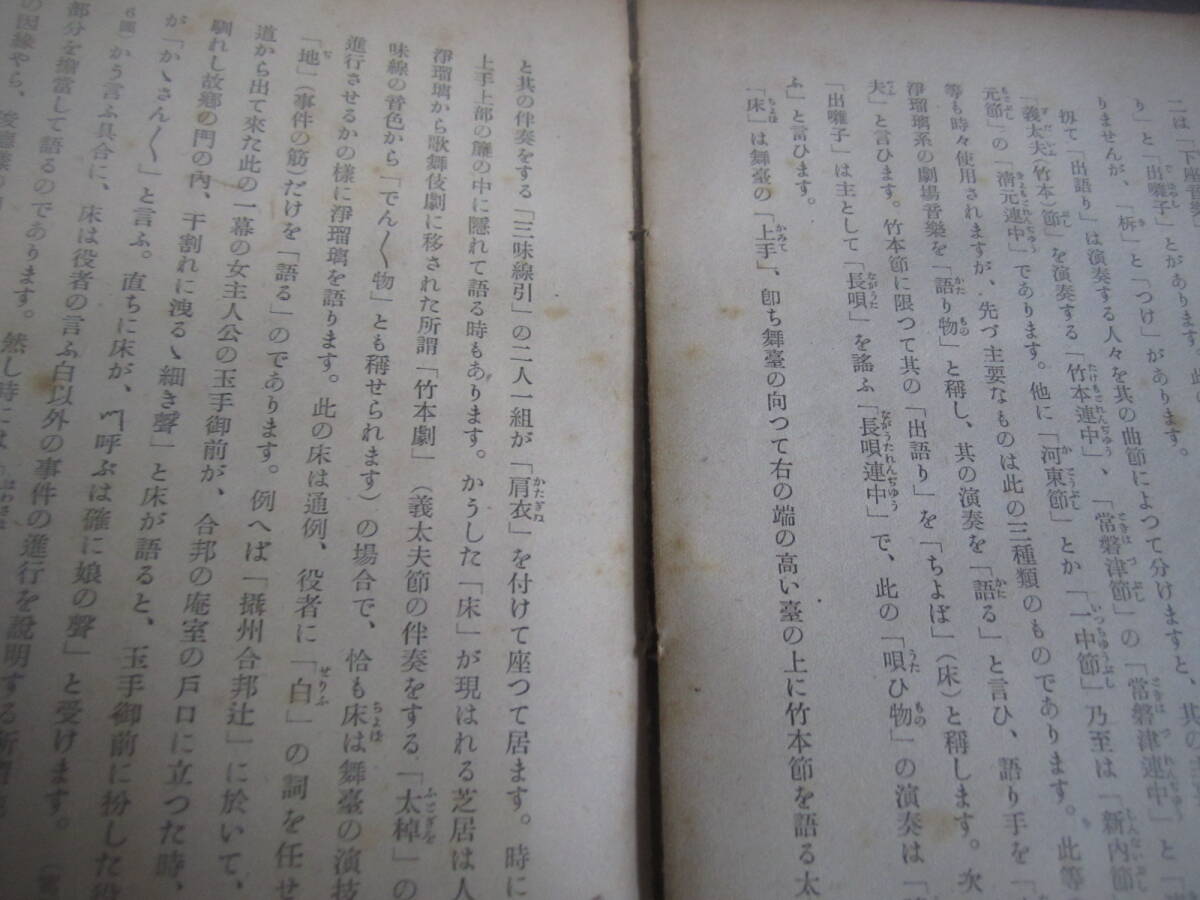 二は「下座音
り」と「出囃子」とがあります。此
りませんが、「柝」と「つけ」があります。
扨て「出語り」は演奏する人々を其の曲節によつて分けますと、其の主
「義太夫(竹本)節」を演奏する「竹本連中」、「常磐津節」の「常磐津連中」と「
元節」の「清元連中」であります。他に「河東節」とか「一中節」乃至は「新内節
等も時々使用されますが、先づ主要なものは此の三種類のものであります。此等
淨瑠璃系の劇場音樂を「語り物」と稱し、其の演奏を「語る」と言ひ、語り手を「
夫」と言ひます。竹本節に限つて其の「出語り」を「ちよぼ」(床)と稱します。次
「出囃子」は主として「長唄」を謠ふ「長唄連中」で、此の「唄ひ物」の演奏は「
ふ」と言ひます。
「床」は舞臺の「上手」、卽ち舞臺の向つて右の端の高い臺の上に竹本節を語る太
と其の伴奏をする「三味線引」の二人一組が「肩衣」を付けて座つて居ます。時に
上手上部の簾の中に隱れて語る時もあります。かうした「床」が現はれる芝居は人
淨瑠璃から歌舞伎劇に移された所謂「竹本劇」(義太夫節の伴奏をする「太棹」の
味線の音色から「でん〱物」とも稱せられます)の場合で、恰も床は舞臺の演技
進行させるかの樣に淨瑠璃を語ります。此の床は通例、役者に「白」の詞を任せ
「地」(事件の筋)だけを「語る」のであります。例へば「攝州合邦辻」に於いて、
道から出て來た此の一幕の女主人公の玉手御前が、合邦の庵室の戶口に立つた時、
馴れし故鄕の門の內、干割れに洩るゝ細き聲」と床が語ると、玉手御前に扮した役
が「かゝさん〱」と言ふ。直ちに床が、〽呼ぶは確に娘の聲」と受けます。
6圖)かう言ふ具合に、床は役者の言ふ白以外の事件の進行を說明する所謂
部分を擔當して語るのであります。然し時には「
の因緣やら、